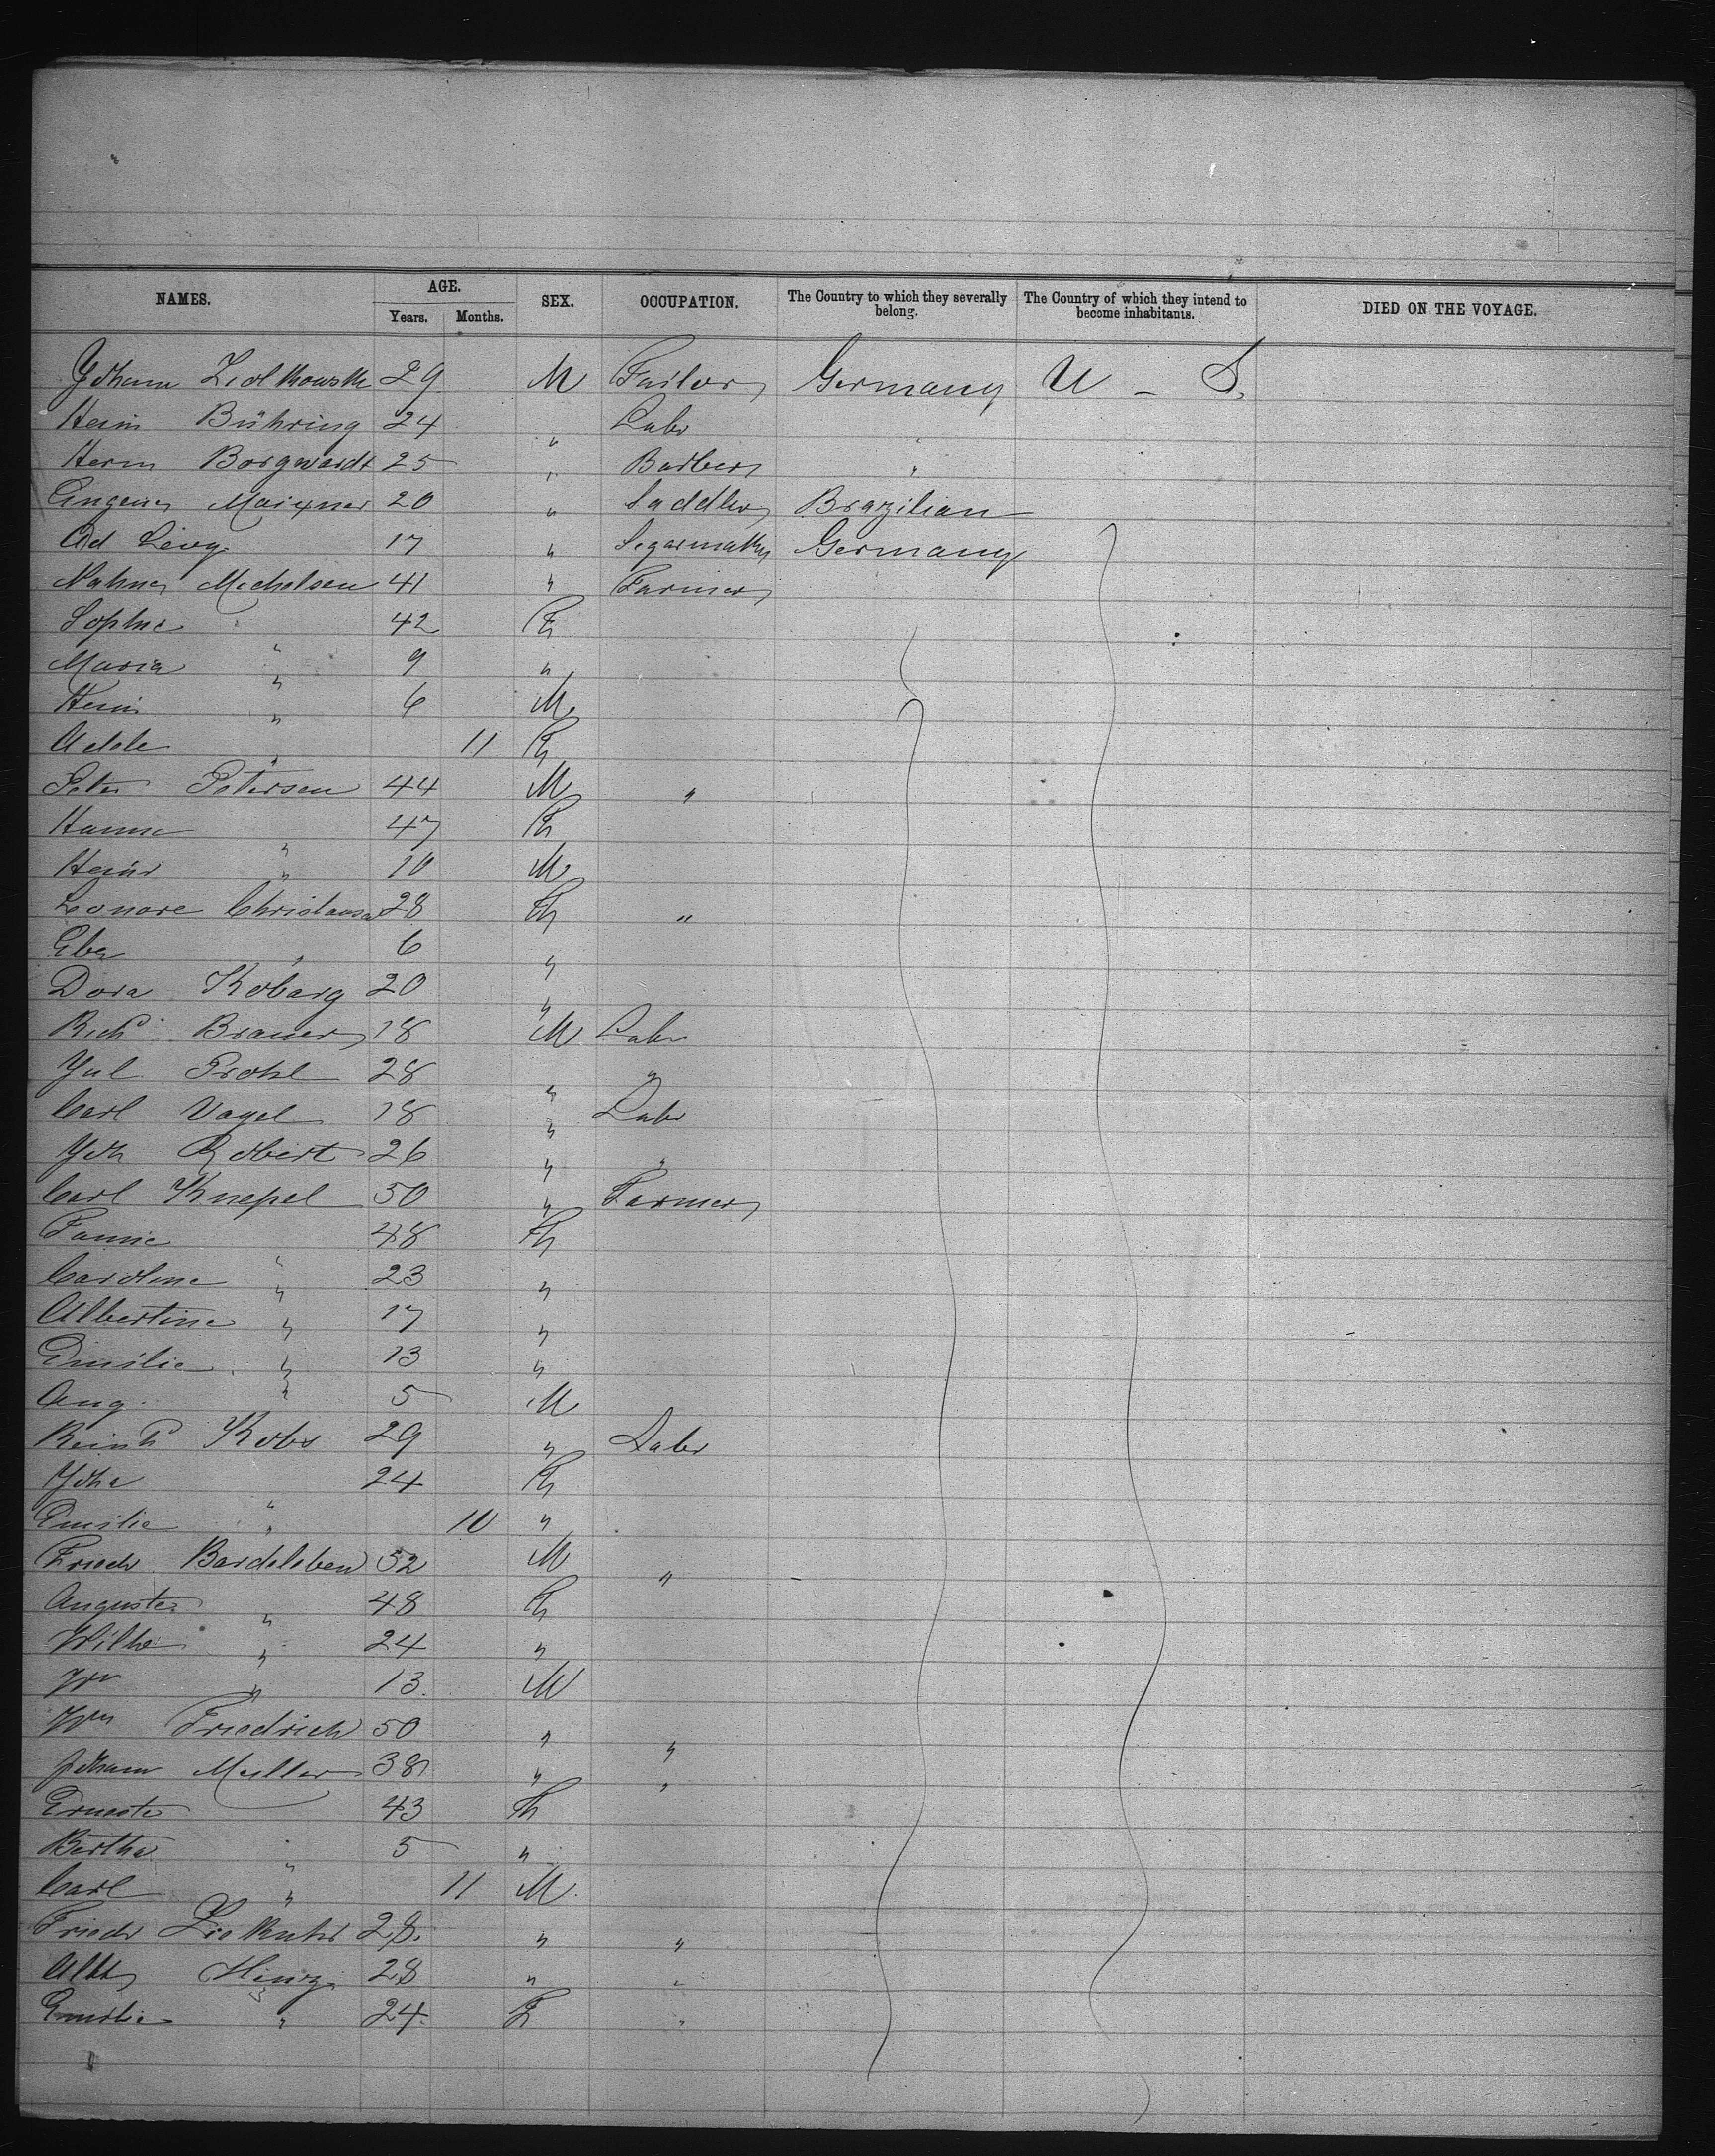 NAMES. AGE. SEX. OCCUPATION. The Country to which they severally belong. The Country of which they intend to become inhabitants. DIED ON THE VOYAGE.
Years. Months.
Johann Ziolkowsk 29 M Tailor Germany U - S.
Hein Bühring 24 " Labr
Herm Borgwardt 25 " Barber "
Eugene Maixner 20 " Saddler Brazilian
Ad Levy 17 " Segarmaker Germany
Michelsen 41 " Farmer
Sophie " 42 F
Maria " 9 "
Hein " 6 M
Adele " 11 F
Peter Petersen 44 M "
Hanne " 47 F
Heinr " 10 M
Leonore Christansen 28 F "
Elbe " 6 "
Dora Kobarg 20 "
Richd Brauer 18 M Labr
Jul Prohl 28 " "
Carl Vagel 18 " Labr
Joh Robert 26 " "
Carl Knepel 50 " Farmer
Fannie " 48 F
Caroline " 23 "
Albertine " 17 "
Emilie " 13 "
Aug. " 5 M
Reinhd Kobs 29 " Labr
Joha " 24 F
Emilie " 10 "
Friedr Bardeleben 52 M "
Auguste " 48 F
Wilhe " 24 "
Wm " 13 M
Wm Friedrich 50 " "
Johann Muller 38 " "
Erneste " 43 F
Bertha " 5 "
Carl " 11 M
Friedr Ziekuhr 28 " "
Albt Hinz 28 " "
Emilie " 24 F "